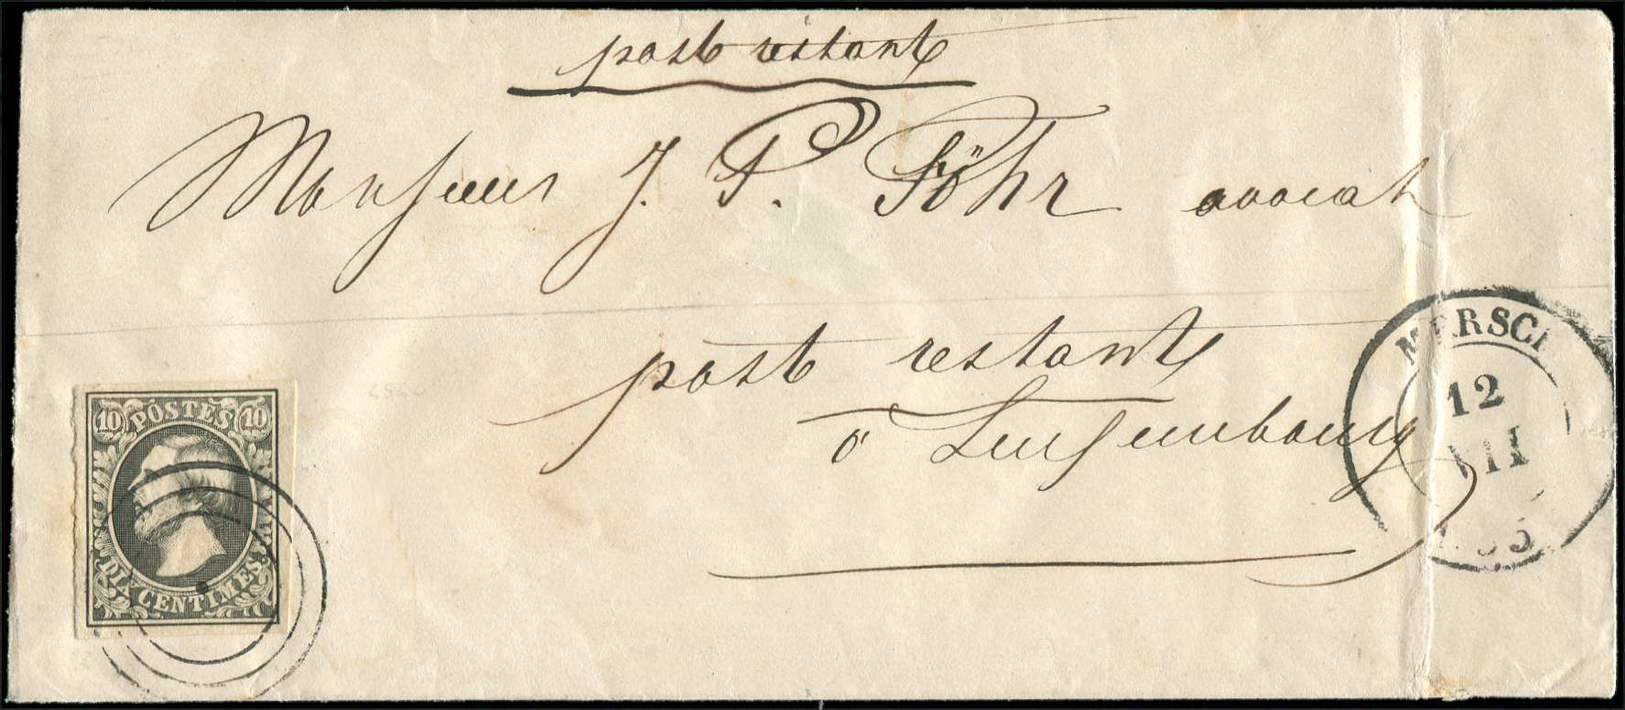 post restant
Monsieur J. P. Föhr avocat
post restant
à Luxembourg
10 POSTES 10
DIX CENTIMES
MERSCH
12